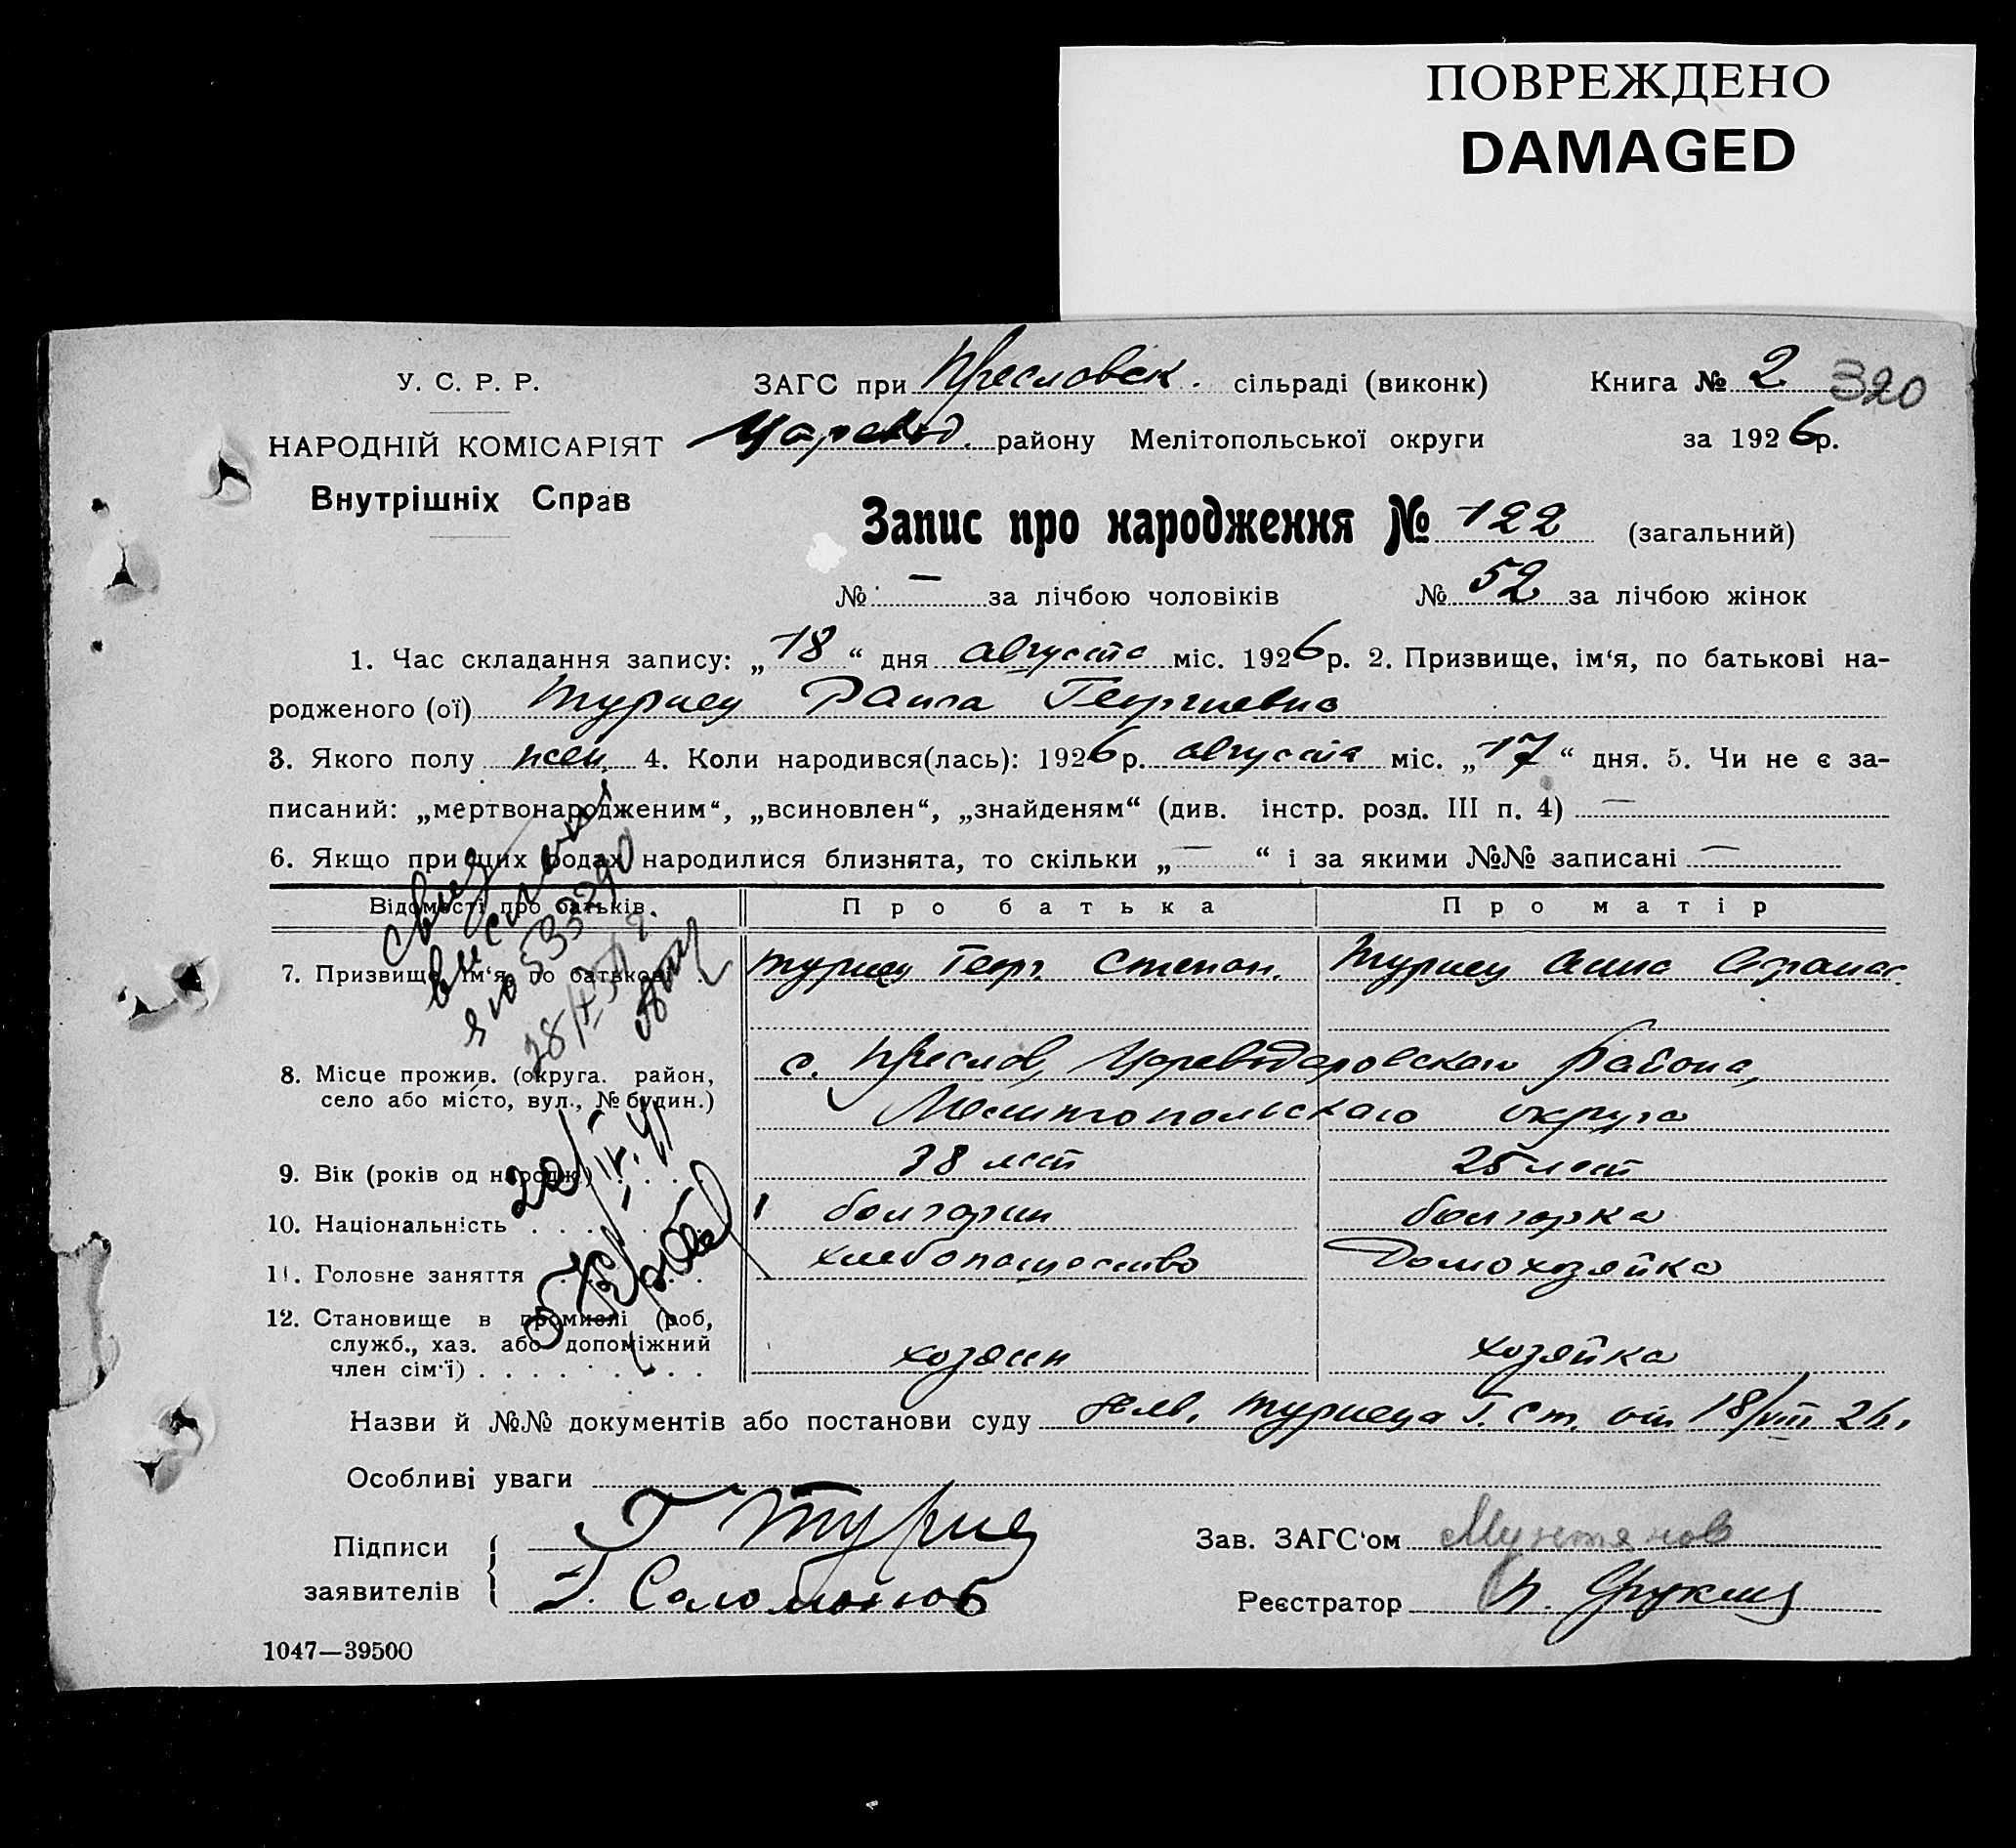 ПОВРЕЖДЕНО
DAMAGED
У. С. Р. Р.
НАРОДНІЙ КОМІСАРІЯТ
Внутрішніх Справ
ЗАГС при Преславск. сільраді (виконк) Книга № 2 320
Царевод. району Мелітопольської округи за 1926 р.
Запис про народження № 122 (загальний)
№ — за лічбою чоловіків № 52 за лічбою жінок
1. Час складання запису: „18“ дня августа міс. 1926 р. 2. Призвище, ім‘я, по батькові на-
родженого (ої) Туриец Раиса Георгиевна
3. Якого полу жен. 4. Коли народився(лась): 1926 р. августа міс. „17“ дня. 5. Чи не є за-
писаний: „мертвонародженим“, „всиновлен“, „знайденям“ (див. інстр. розд. III п. 4) —
6. Якщо при цих родах народилися близнята, то скільки „—“ і за якими №№ записані —
Відомості про батьків. Про батька Про матір
7. Призвище, ім‘я, по батькові Туриец Георг. Степан. Туриец Анна Афанас.
8. Місце прожив. (округа. район,
село або місто, вул., № будин.)
с. Преслав, Цареводаровскаго Района,
Мелитопольскаго округа
9. Вік (років од народж.) 38 лет 25 лет
10. Національність болгарин болгарка
11. Головне заняття хлебопашество Домохозяйка
12. Становище в промислі (роб,
служб., хаз. або допоміжний
член сім‘ї) хозяин хозяйка
Назви й №№ документів або постанови суду заяв. Туриеца Г. Ст. от 18/VIII 26.
Особливі уваги
Підписи
заявителів
Г Туриец
Соломонов
Зав. ЗАГС‘ом Мунтянов
Реєстратор
1047—39500